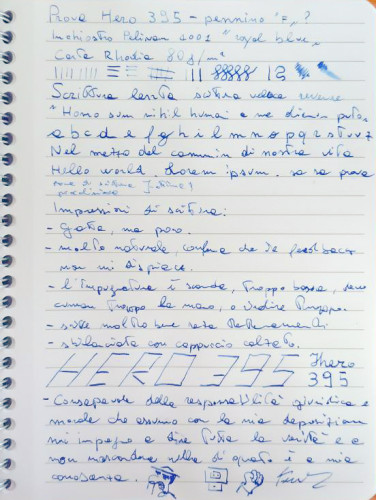 Prova Hero 395 - pennino "F" ?
Inchiostro Pelikan 4001 "royal blue"
Carta Rhodia 80 g/m²
Scrittura lenta scrittura veloce reverse
"Homo sum nihil humani a me alienum puto"
a b c d e f g h i l m n o p q r s t u v z
Nel mezzo del cammin di nostra vita
Hello world. Lorem ipsum. sa sa prova
Impressioni di scrittura:
- Gratta, ma poco.
- molto naturale, che da feedback
non mi dispiace.
- l'impugnatura è tonda, troppo bassa, devo
troppo la mano, o
- scrive molto bene
- sbilanciata con cappuccio calzato.
HERO 395 Hero
395
- Consapevole della responsabilità giuridica e
morale che assumo con la mia deposizione
mi impegno a dire tutta la verità e a
non nascondere nulla di quanto è a mia
conoscenza.